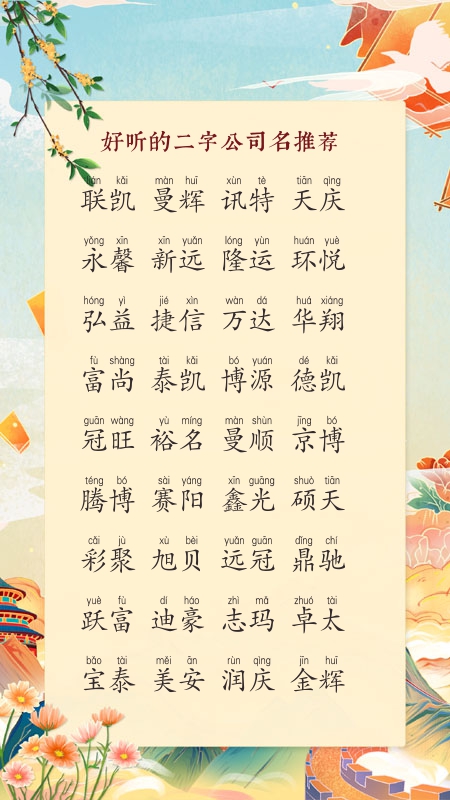 好听的二字公司名推荐
lián kǎi màn huī xùn tè tiān qìng
联凯 曼辉 讯特 天庆
yǒng xīn xīn yuǎn lóng yùn huán yuè
永馨 新远 隆运 环悦
hóng yì jié xìn wàn dá huá xiáng
弘益 捷信 万达 华翔
fù shàng tài kǎi bó yuán dé kǎi
富尚 泰凯 博源 德凯
guān wàng yù míng màn shùn jīng bó
冠旺 裕名 曼顺 京博
téng bó sài yáng xīn guāng shuò tiān
腾博 赛阳 鑫光 硕天
cǎi jù xù bèi yuǎn guān dǐng chí
彩聚 旭贝 远冠 鼎驰
yuè fù dí háo zhì mǎ zhuó tài
跃富 迪豪 志玛 卓太
bǎo tài měi ān rùn qìng jīn huī
宝泰 美安 润庆 金辉